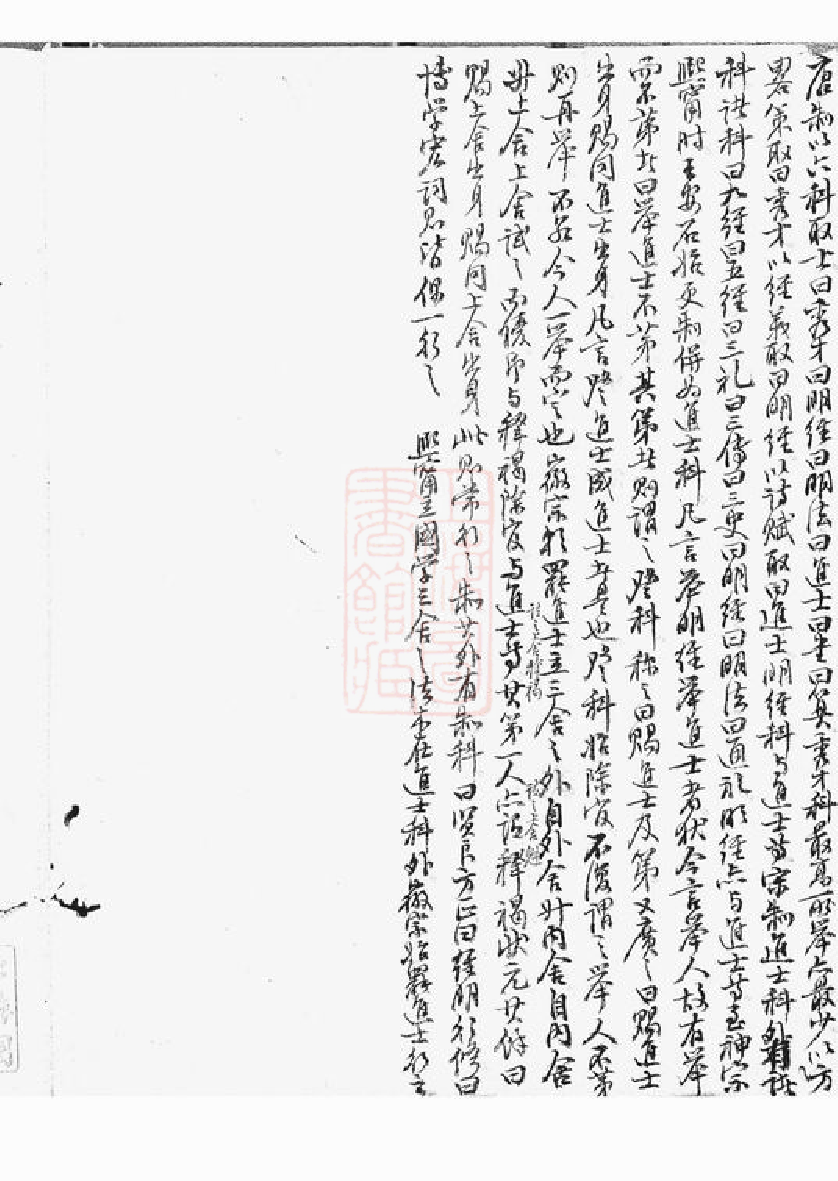 唐制以六科取士曰秀才曰明経曰明法曰進士曰書曰筭秀才科最髙所举亦最少以方
畧策取曰秀才以経義取曰明経以詩賦取曰進士明経科与進士等宋制進士科外有諸
科諸科曰九経曰五経曰三礼曰三傳曰三史曰明経曰明法曰通礼明経亦与進士等至神宗
熙甯时王安石始更制併为進士科凡言举明経举進士者状今言举人故有举
而不第者曰举進士不第其第者则謂之登科称之曰賜進士及第又廣之曰賜進士
出身賜同進士出身凡言登進士成進士者是也登科始除官不復謂之举人不第
则再举不若今人一举而定也徽宗朝罷進士立三舍之外自外舍升内舍自内舍
升上舍上舍試之而優即与釋褐除官与進士等其第一人亦謂釋褐状元其餘曰
賜上舍出身賜同上舍出身此则常行之制其外有制科曰賢良方正曰経明行修曰
博学宏詞则皆偶一行之 熙甯立國学三舍之法在進士科外徽宗始罷進士行之